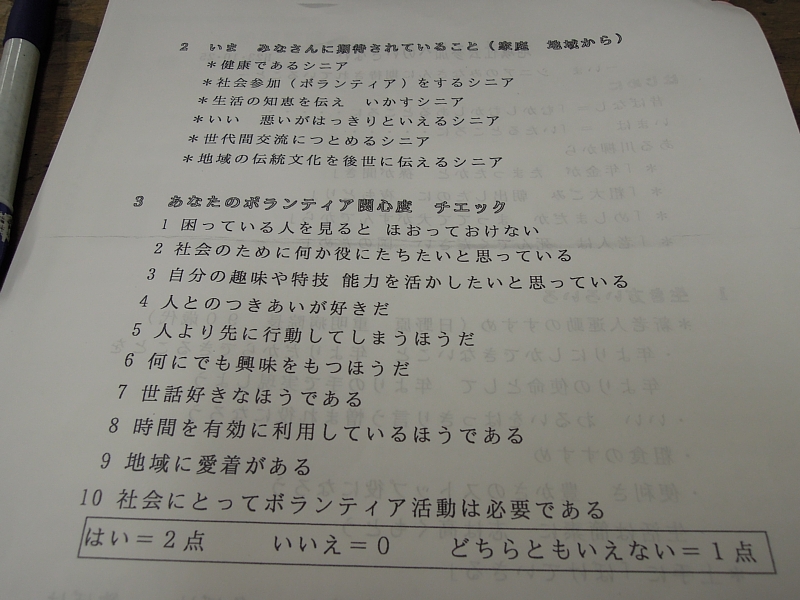 2 いま みなさんに期待されていること（家庭 地域から）
＊健康であるシニア
＊社会参加（ボランティア）をするシニア
＊生活の知恵を伝え いかすシニア
＊いい 悪いがはっきりといえるシニア
＊世代間交流につとめるシニア
＊地域の伝統文化を後世に伝えるシニア
3 あなたのボランティア関心度 チエック
1 困っている人を見ると ほおっておけない
2 社会のために何か役にたちたいと思っている
3 自分の趣味や特技 能力を活かしたいと思っている
4 人とのつきあいが好きだ
5 人より先に行動してしまうほうだ
6 何にでも興味をもつほうだ
7 世話好きなほうである
8 時間を有効に利用しているほうである
9 地域に愛着がある
10 社会にとってボランティア活動は必要である
はい＝2点 いいえ＝0 どちらともいえない＝1点